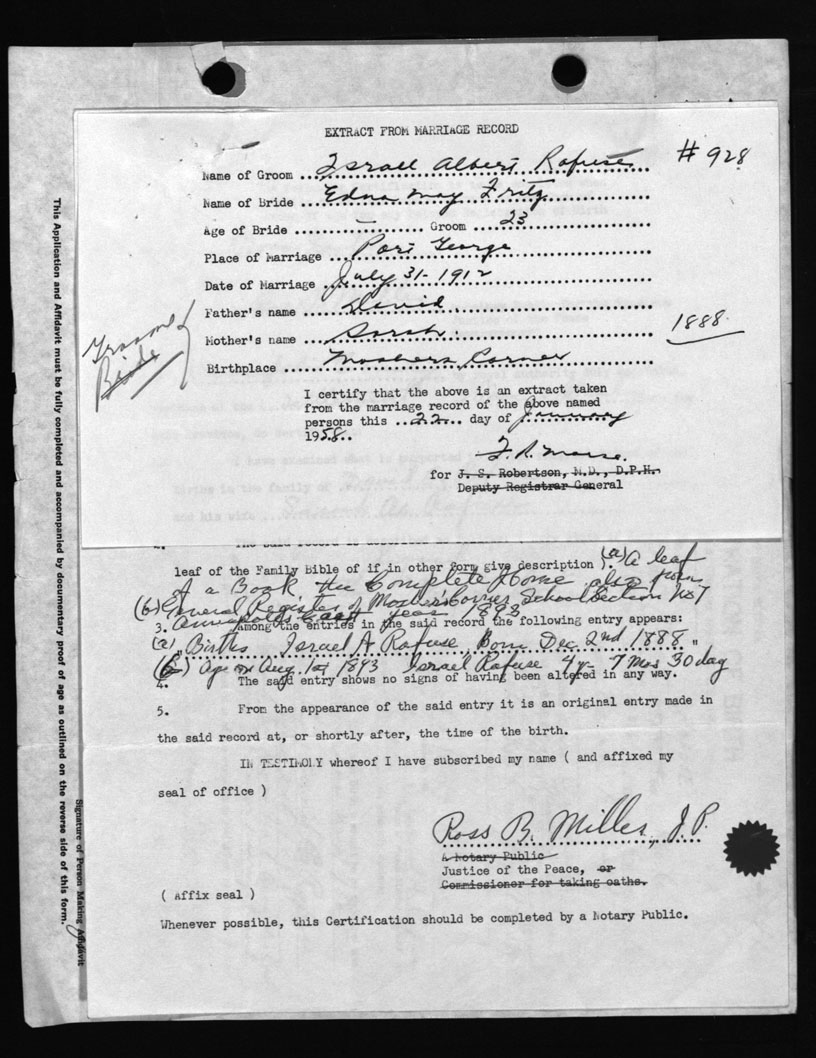 EXTRACT FROM MARRIAGE RECORD
# 928
Name of Groom ... Israel Albert Rafuse
Name of Bride ... Edna May Fritz
Age of Bride ... — ... Groom ... 23
Place of Marriage ... Port George
Date of Marriage ... July 31 - 1912
Father's name ... David
1888
Mother's name ... Sarah
Groom
Bride
Birthplace ... Moshers Corner
I certify that the above is an extract taken
from the marriage record of the above named
persons this ...22... day of January
1958..
for J. S. Robertson, M.D., D.P.H.
Deputy Registrar General
leaf of the Family Bible of if in other form give description ). (a) A leaf
of a Book the Complete Home also from
(b) General Register of Mosher's Corner School Section No 7
Annapolis East year 1893
3. Among the entries in the said record the following entry appears:
(a) "Births Israel A Rafuse, Born Dec 2nd 1888"
(b) Age on Aug. 1st 1893 Israel Rafuse 4 yr 7 Mos 30 day
4. The said entry shows no signs of having been altered in any way.
5. From the appearance of the said entry it is an original entry made in
the said record at, or shortly after, the time of the birth.
IN TESTIMONY whereof I have subscribed my name ( and affixed my
seal of office )
Ross B. Miller, J.P.
A Notary Public
Justice of the Peace, or
Commissioner for taking oaths.
( Affix seal )
Whenever possible, this Certification should be completed by a Notary Public.
This Application and Affidavit must be fully completed and accompanied by documentary proof of age as outlined on the reverse side of this form.
Signature of Person Making Affidavit